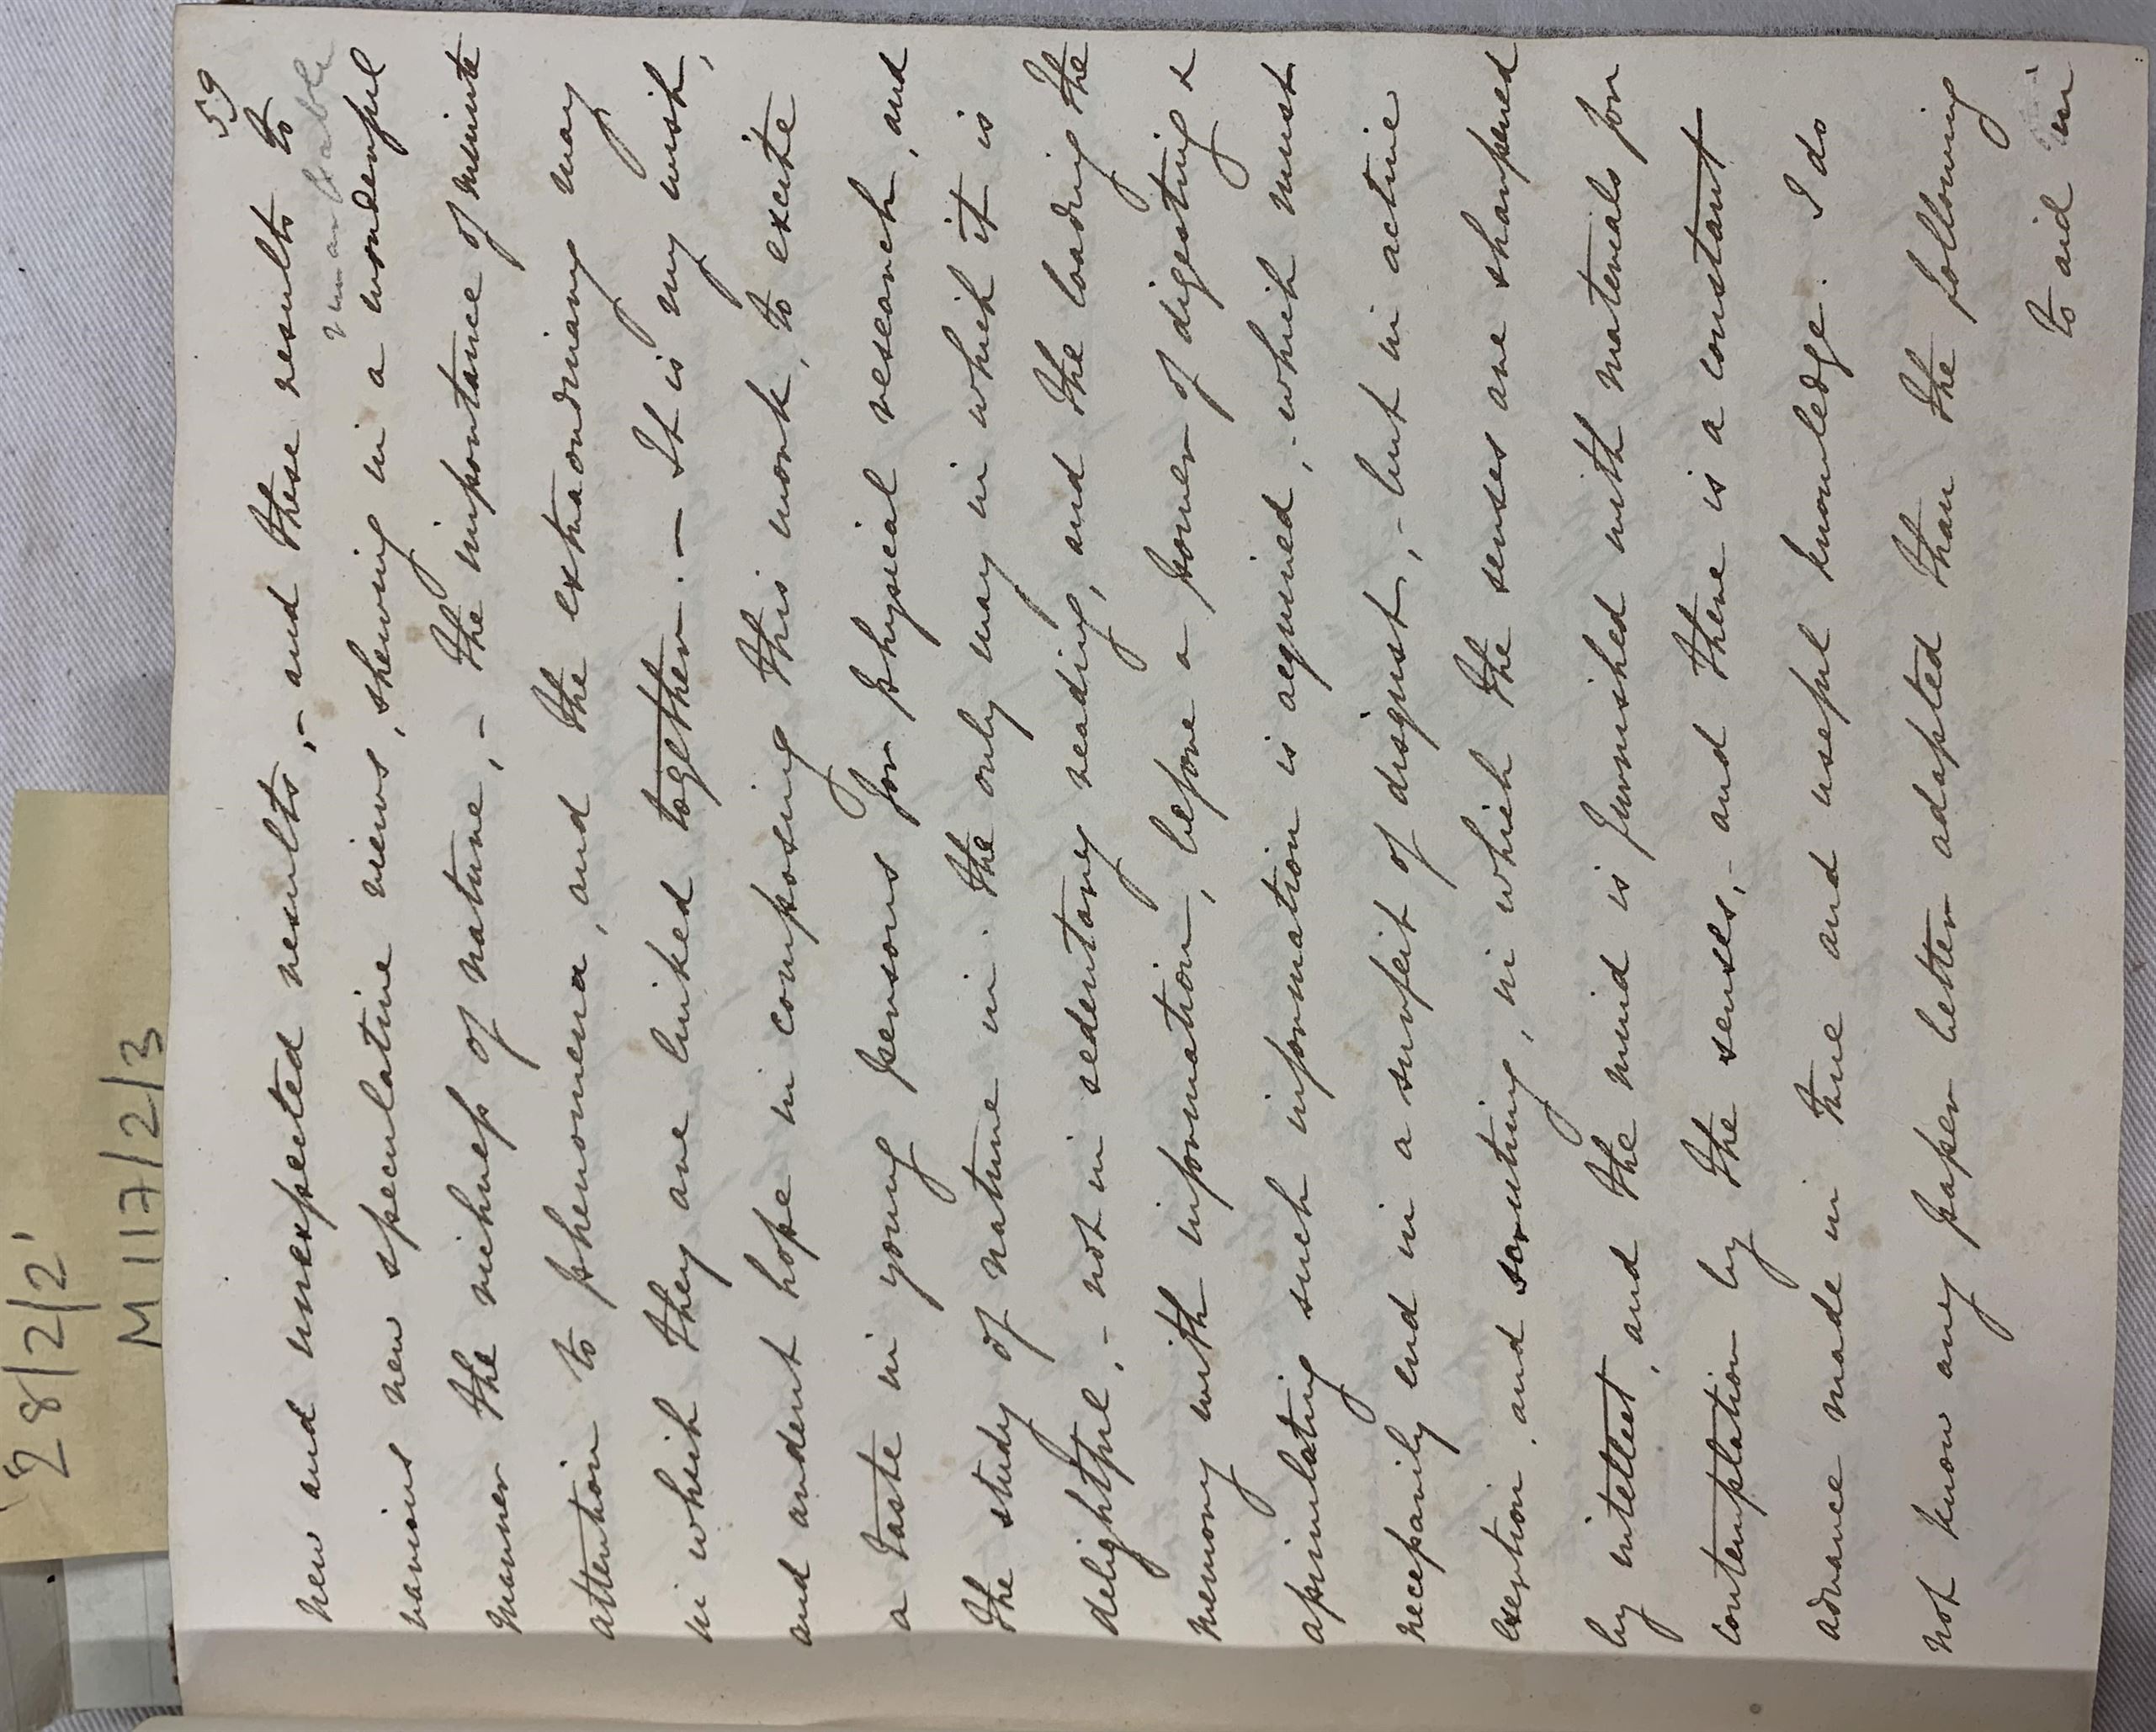 28/2/2'
M 117/2/3
59
new and unexpected results,- and these results to
remarkable
various new speculative views, shewing in a wonderful
manner the richness of nature,- the importance of minute
attention to phenomena, and the extraordinary way
in which they are linked together. — It is my wish,
and ardent hope in composing this work, to excite
a taste in young persons for physical research, and
the study of nature in the only way in which it is
delightful,- not in sedentary reading, and the loading the
memory with information, before a power of digesting &
assimilating such information is acquired,- which must
necessarily end in a surfeit of disgust,- but in active
exertion and scrutiny, in which the senses are sharpened
by intellect, and the mind is furnished with materials for
contemplation by the senses,- and there is a constant
advance made in true and useful knowledge. I do
not know any paper better adapted than the following
to aid in